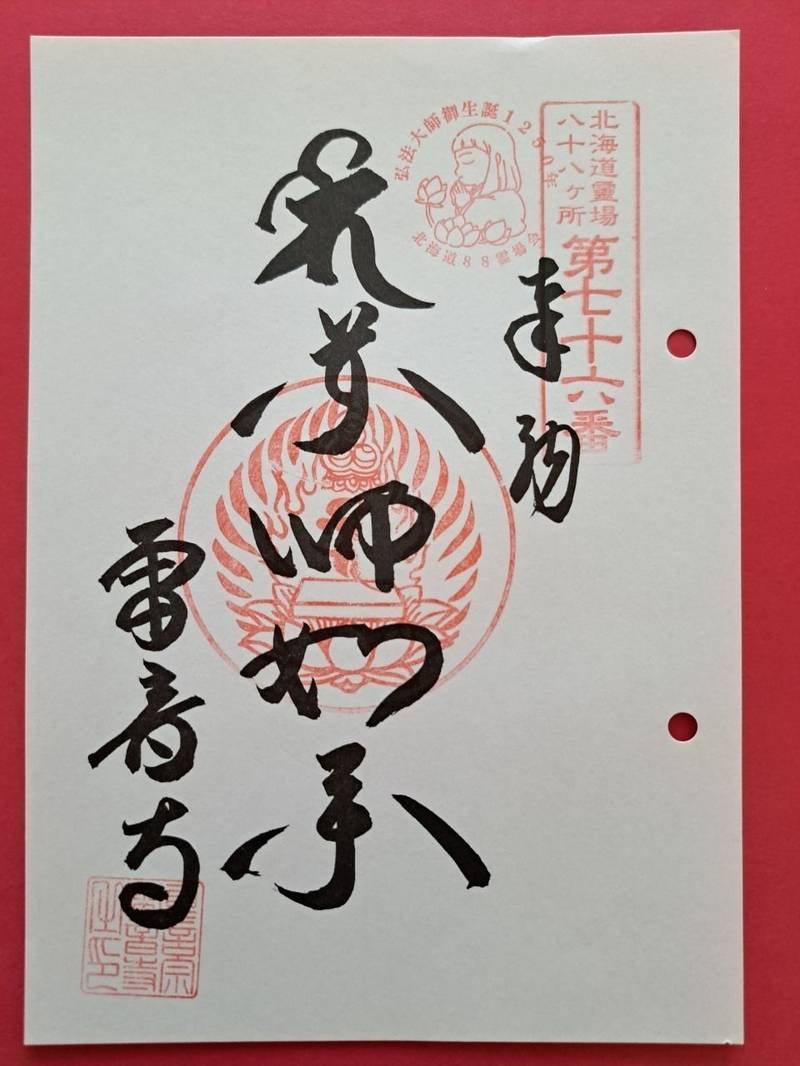 北海道靈場
八十八ヶ所
第七十六番
弘法大師御生誕1250年
北海道88霊場会
奉納
薬師如来
雷音寺